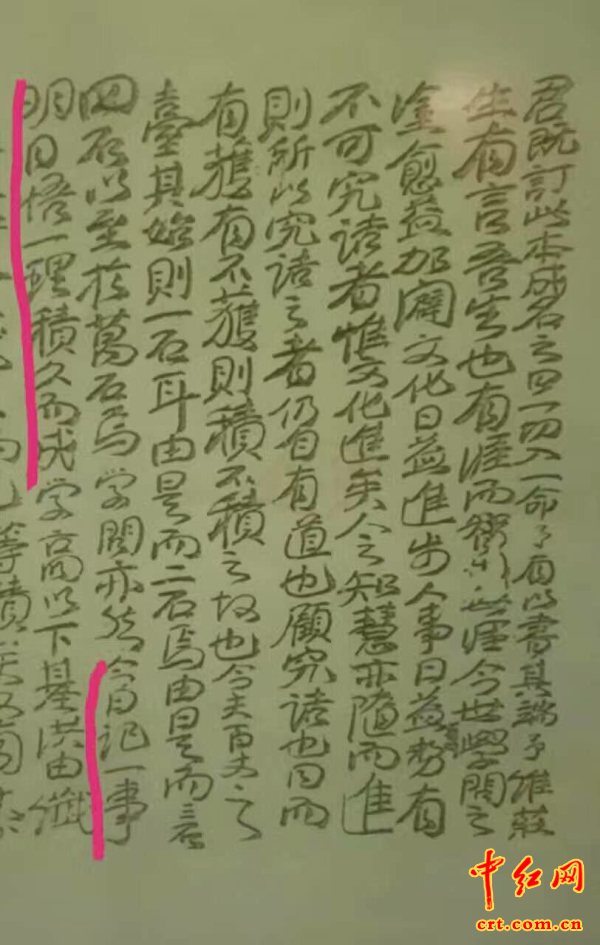 君既訂此本成名之曰一切入一命予有以書其端予維莊
生有言吾生也有涯而智也無涯今世學問之
塗愈益加闢文化日益進步人事日益蕃勢有
不可究诘者惟文化進矣人之知慧亦隨而進
則所以究诘之者仍自有道也顧究诘也同而
有獲有不獲則積不積之故也今夫百丈之
臺其始則一石耳由是而二石焉由是而三石
四石以至於萬石焉学問亦然今日记一事
明日悟一理積久而成学高以下基洪由纖
中红网
crt.com.cn